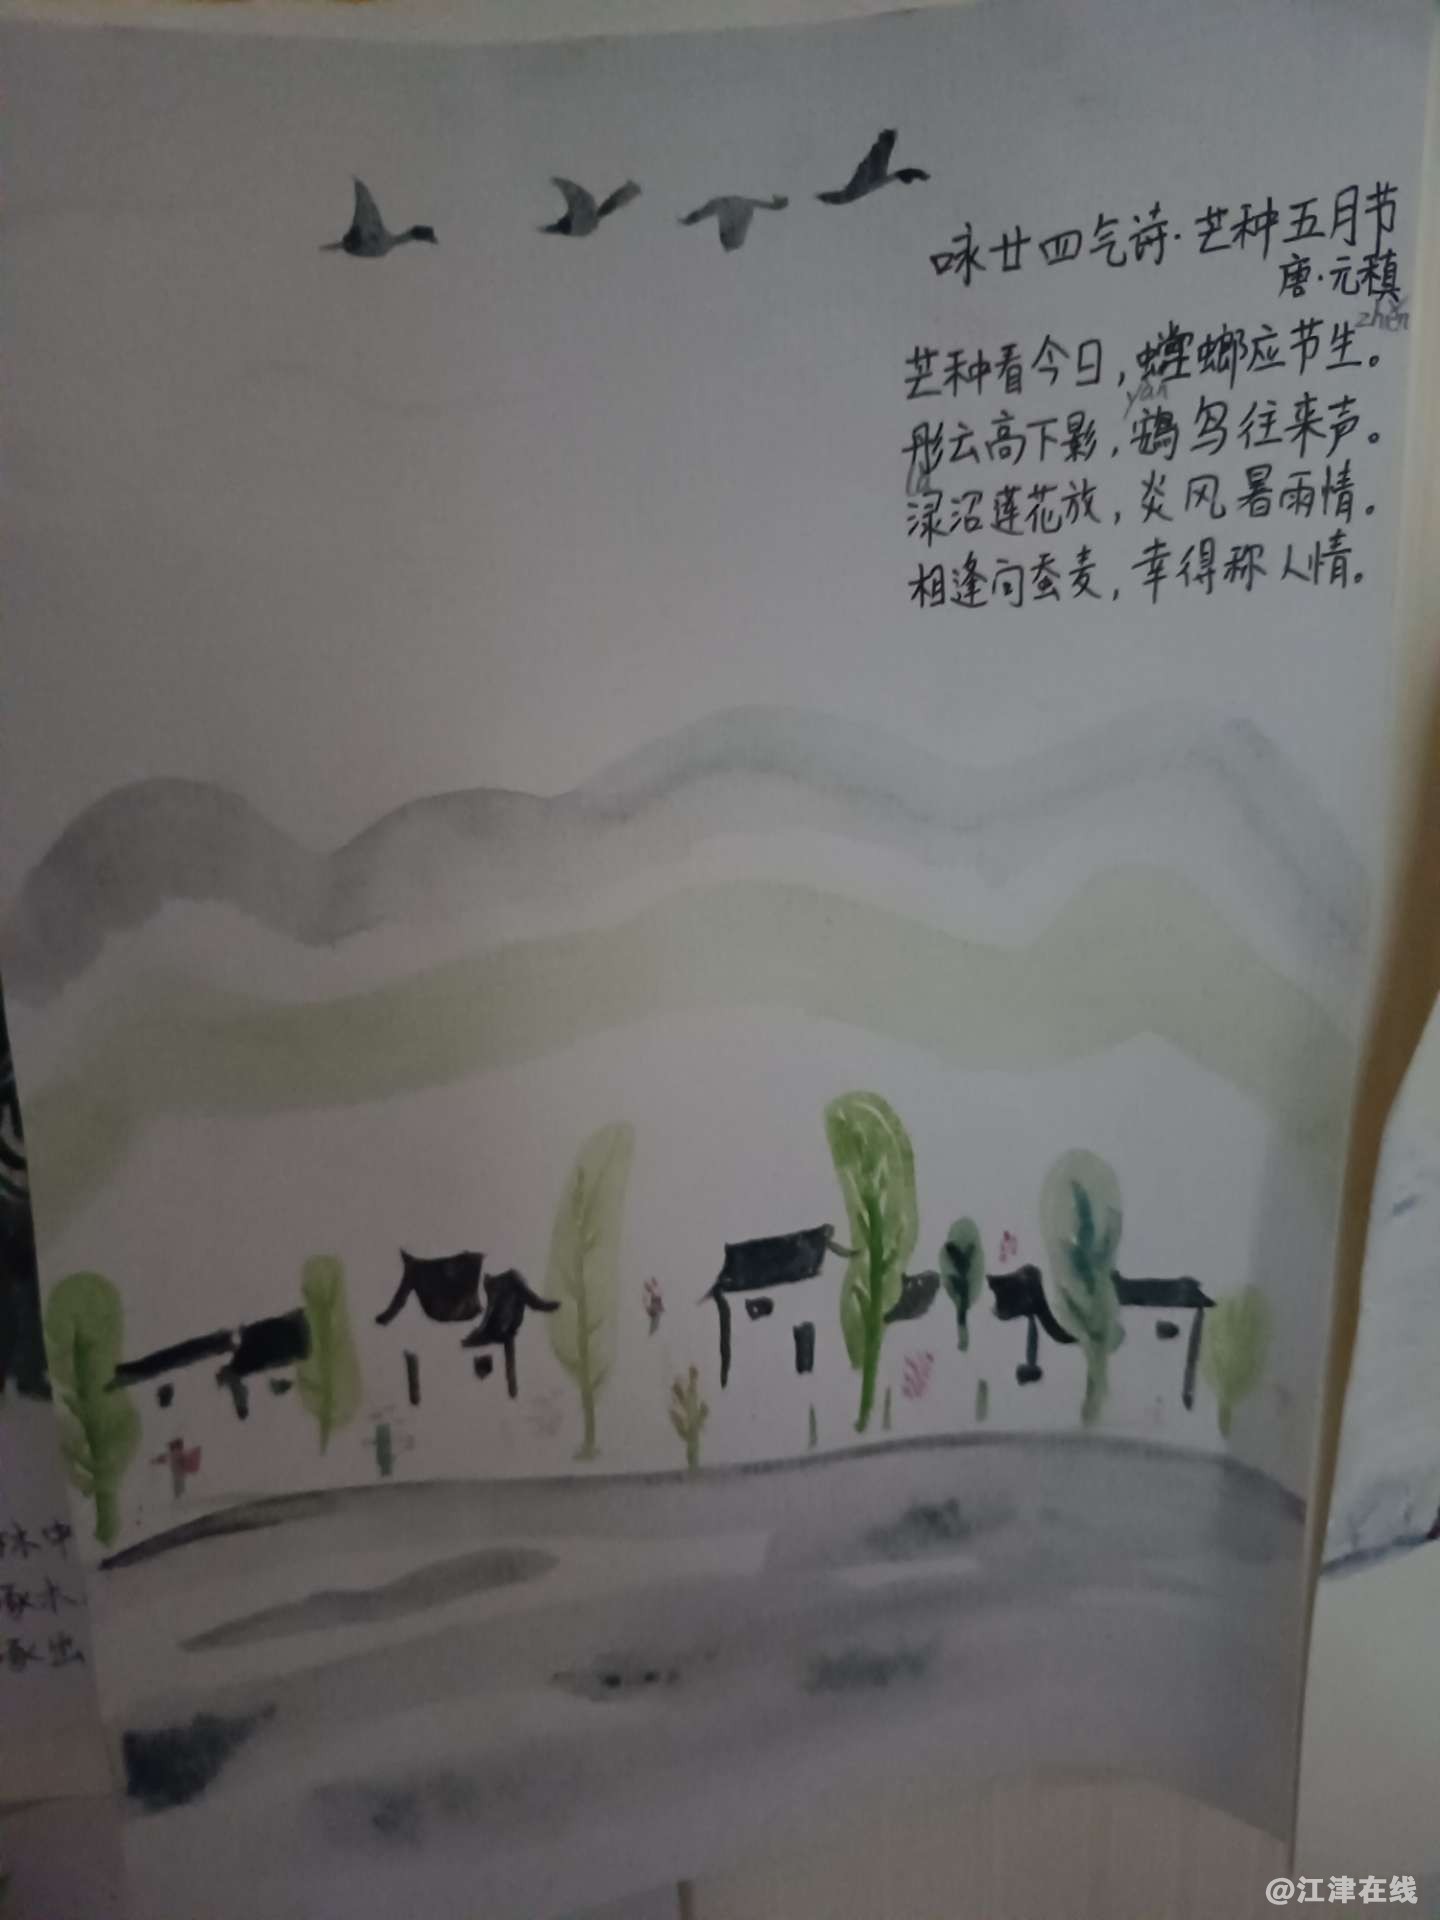 咏廿四气诗·芒种五月节
唐·元稹
zhěn
芒种看今日，螳螂应节生。
yàn
彤云高下影，鴳鸟往来声。
lù
渌沼莲花放，炎风暑雨情。
相逢问蚕麦，幸得称人情。
林中
啄木
啄出
@江津在线